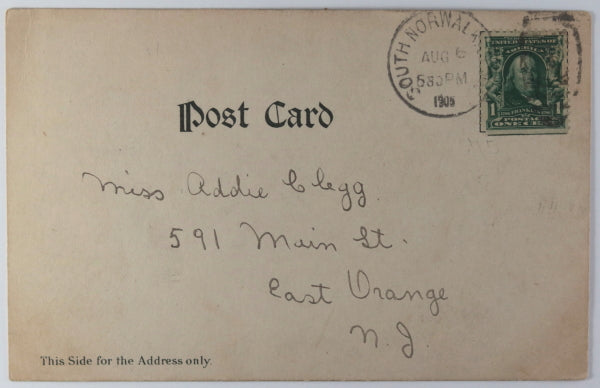 SOUTH NORWALK
AUG 6
530PM
1905
UNITED STATES OF
AMERICA
1 1
POSTAGE
ONE CENT
Post Card
Miss Addie Clegg.
591 Main St.
East Orange
N. J.
This Side for the Address only.